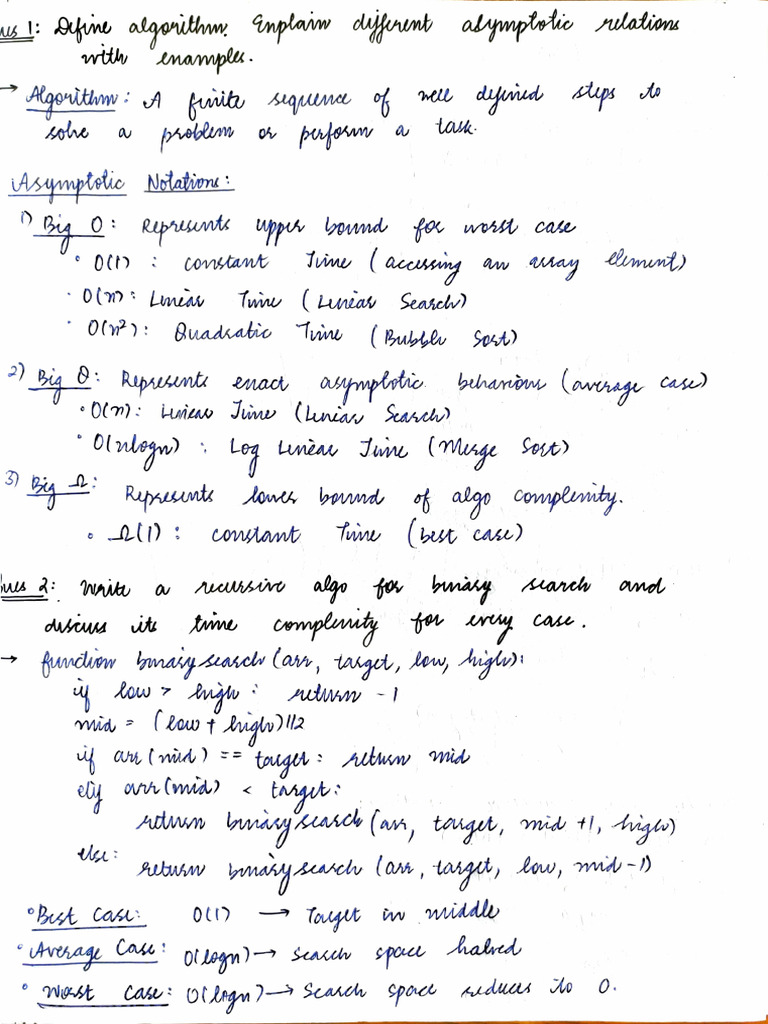 ues 1: Define algorithm. Enplain different asymptotic relations
with enamples.
→ Algorithm: A finite sequence of well defined steps to
solve a problem or perform a task.
Asymptotic Notations:
1) Big O: Represents upper bound for worst case
• O(1) : constant Time (accessing an array element)
• O(n): Linear Time (Linear Search)
• O(n²): Quadratic Time (Bubble Sort)
2) Big θ: Represents enact asymptotic behaviour (average case)
• O(n): Linear Time (Linear Search)
• O(nlogn) : Log Linear Time (Merge Sort)
3) Big Ω: Represents lower bound of algo complenity.
• Ω(1): constant Time (best case)
ues 2: Write a recursive algo for binary search and
discuss its time complenity for every case.
→ function binarysearch(arr, target, low, high):
if low > high : return -1
mid = (low + high)//2
if arr(mid) == target: return mid
elif arr(mid) < target:
return binarysearch(arr, target, mid +1, high)
else:
return binarysearch (arr, target, low, mid-1)
• Best Case: O(1) → Target in middle
• Average Case: O(logn) → Search space halved
• Worst Case: O(logn) → Search space reduces to 0.